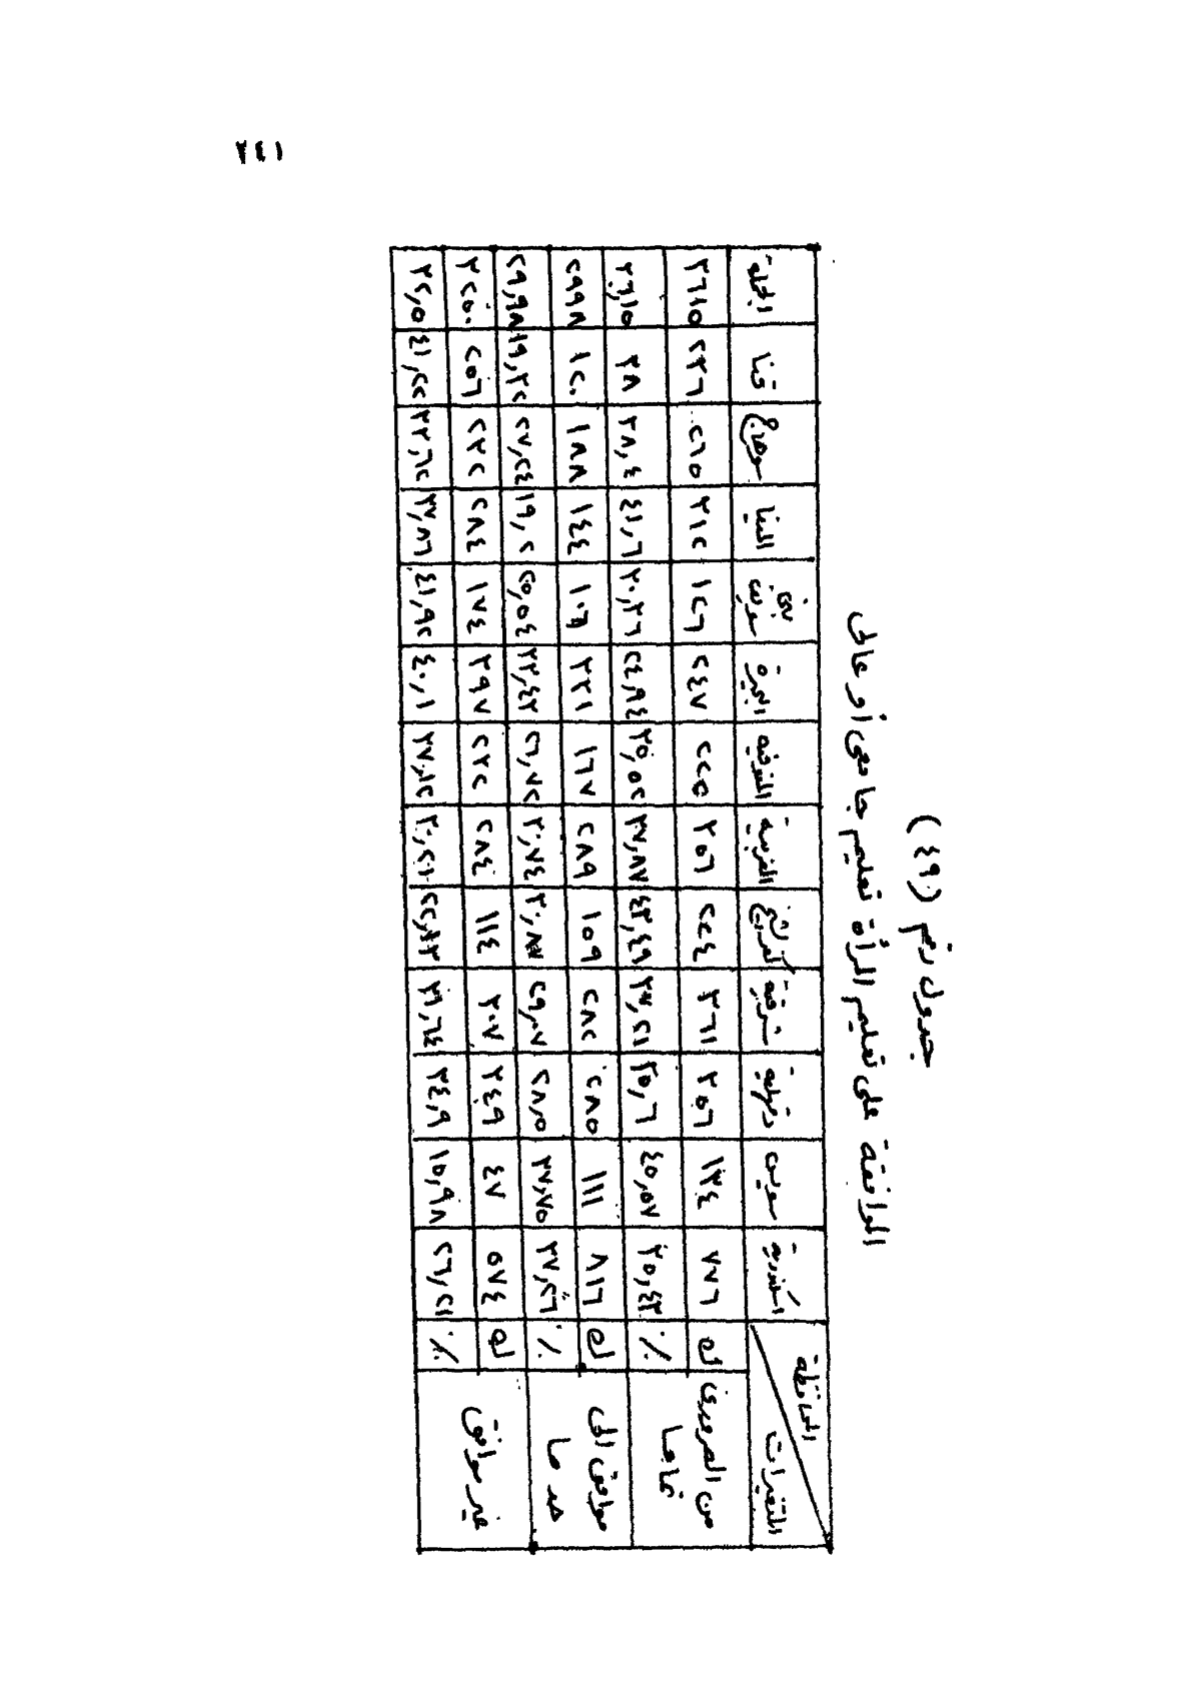 ٢٤١
جدول رقم (٤٩)
الموافقة على تعليم المرأة تعليم جامعى أو عالى
المحافظة المتغيرات اسكندرية سويس دقهلية شرقية كفر الشيخ الغربية المنوفية الجيزة بنى سويف المنيا سوهاج قنا الجملة
من الضرورى تماما ك ٧٧٦ ١٣٤ ٣٥٦ ٣٦١ ٢٢٤ ٣٥٦ ٢٢٥ ٢٤٧ ١٢٦ ٣١٢ ٢٦٥ ٢٣٦ ٣٦١٥
٪ ٣٥,٤٣ ٤٥,٥٧ ٣٥,٦ ٣٧,٢١ ٤٣,٤٩ ٣٧,٨٧ ٣٥,٥٢ ٢٤,٩٤ ٣٠,٣٦ ٤١,٦ ٣٨,٤ ٣٨ ٣٦,١٥
موافق الى حد ما ك ٨١٦ ١١١ ٢٨٥ ٢٨٢ ١٥٩ ٢٨٩ ١٦٧ ٣٣١ ١٠٦ ١٤٤ ١٨٨ ١٢٠ ٢٩٩٨
٪ ٣٧,٢٦ ٣٧,٧٥ ٢٨,٥ ٢٩,٠٧ ٣٠,٨٧ ٣٠,٧٤ ٢٦,٧٢ ٣٣,٤٣ ٢٥,٥٤ ١٩,٢ ٢٧,٢٤ ١٩,٣٢ ٢٩,٩٨
غير موافق ك ٥٧٤ ٤٧ ٣٤٩ ٣٠٧ ١١٤ ٢٨٤ ٢٣٢ ٣٩٧ ١٧٤ ٢٨٤ ٢٣٢ ٢٥٦ ٣٢٥٠
٪ ٢٦,٢١ ١٥,٩٨ ٣٤,٩ ٣١,٦٤ ٣٠,٢١ ٣٧,١٢ ٤٠,١ ٤١,٩٢ ٣٧,٨٦ ٣٣,٦٢ ٤١,٢٢ ٣٢,٥